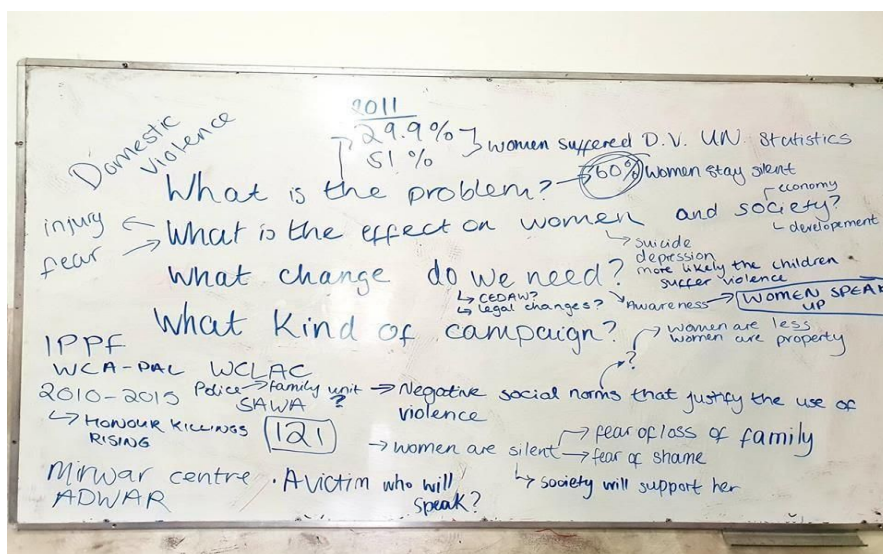 Domestic
violence
2011
29.9%
51%
women suffered D.V. UN. Statistics
What is the problem? → 60% women stay silent
What is the effect on women and society?
economy
developement
injury
fear
suicide
depression
more likely the children
suffer violence
What change do we need?
CEDAW?
legal changes?
Awareness → WOMEN SPEAK
UP
What kind of campaign?
women are less
women are property
?
IPPF
WCA-PAL WCLAC
2010-2015 Police → family unit → Negative social norms that justify the use of
violence
SAWA ?
HONOUR KILLINGS
RISING
121
→ women are silent → fear of loss of family
→ fear of shame
society will support her
Mirwar centre · A victim who will
speak?
ADWAR